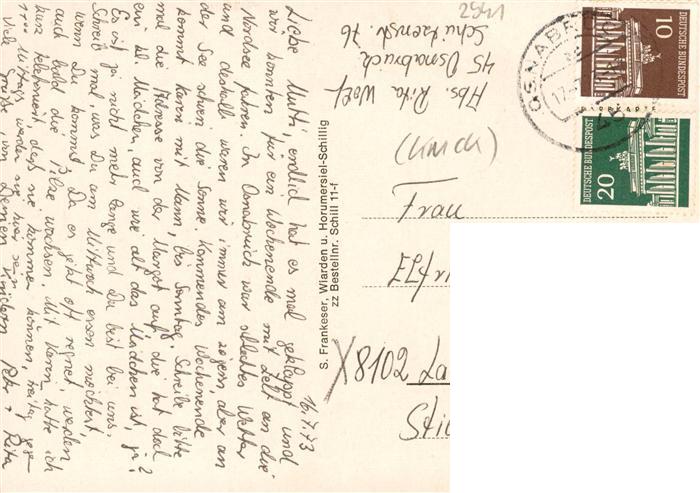 16.7.73
Liebe Mutti, endlich hat es mal geklappt und
wir konnten für ein Wochenende mit Zelt an die
Nordsee fahren. In Osnabrück war schlechtes Wetter
und deshalb waren wir immer am zögern, aber an
der See schien die Sonne. Kommendes Wochenende
kommt Karen mit Mann, bis Sonntag. Schreibe bitte
mal die Adresse von der Margot auf, die hat doch
ein kl. Mädchen, auch wie alt das Mädchen ist, ja?
Es ist ja nicht mehr lange und Du bist bei uns.
Schreib mal, was Du am Mittwoch essen möchtest,
wenn Du kommst. Da es jetzt oft regnet, werden
auch bald die Pilze wachsen. Mit Karen hatte ich
kurz telefoniert, daß sie kommen können, Freitag gegen
Mittag werden sie hier sein.
Viele Grüße, von Deinen Kindern Peter + Rita
S. Frankeser, Wiarden u. Horumersiel-Schillig
zz Bestellnr. Schill 11-f
2941
Abs. Rita Wolf
45 Osnabrück
Schützenstr. 76
OSNABR
17.
10
DEUTSCHE BUNDESPOST
20
DEUTSCHE BUNDESPOST
Frau
Elfr
X8102 La